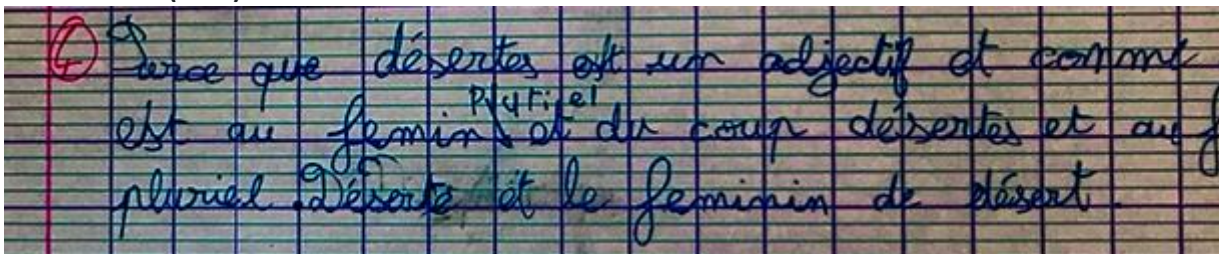 ④ Parce que désertes est un adjectif et comme
est au femin pluriel et du coup désertes et au f
pluriel. Déserte et le feminin de désert.